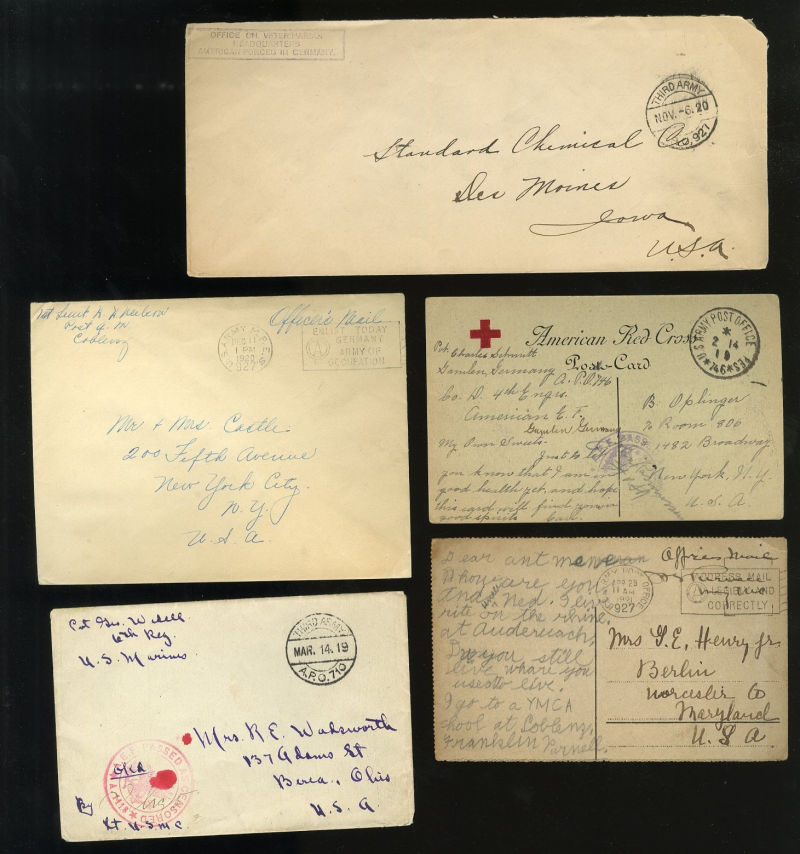 OFFICE OF VETERINARIAN
HEADQUARTERS
AMERICAN FORCES IN GERMANY.
THIRD ARMY
NOV.-6.20
A.P.O. 927
Standard Chemical Co.
Des Moines
Iowa
U.S.A.
Post Q. M.
Coblenz
Officer's Mail
U.S. ARMY M.P.E.S.
DEC 11
1 PM
1920
927
ENLIST TODAY
GERMANY
ARMY OF
OCCUPATION
Mr. + Mrs. Castle
200 Fifth Avenue
New York City.
N. Y.
U. S. A.
American Red Cross
Post-Card
U.S. ARMY POST OFFICE
2 14
19
*746*
Pvt. Charles Schmitt
Gamlen, Germany
A.P.O. 746
Co. D. 4th Engrs.
American E. F.
Gamlen Germany
My Own Sweets-
Just to let
you know that I am in
good health yet, and hope
this card will find you in
good spirits
B. Oplinger
% Room 806
1482 Broadway
New York, N. Y.
U. S. A.
Pvt Geo. Wedell
6th Reg.
U. S. Marines
THIRD ARMY
MAR. 14. 19
A.P.O. 710
Mrs. R. E. Wadsworth
137 Adams St
Berea, Ohio
U. S. A.
A.E.F. PASSED AS CENSORED
OKd
By
Lt. U.S.M.C.
Dear ant
how are you
and Ned. I live
rite on the rhine
at Andernach.
Do you still
live whare you
use to live.
I go to a YMCA
shool at Coblenz,
Franklin
Offices Mail
U.S. ARMY POST OFFICE
APR 23
11 AM
1921
927
ADDRESS MAIL
LEGIBLY AND
CORRECTLY
Mrs G. E. Henry Jr.
Berlin
Worcester Co
Maryland
U. S. A.